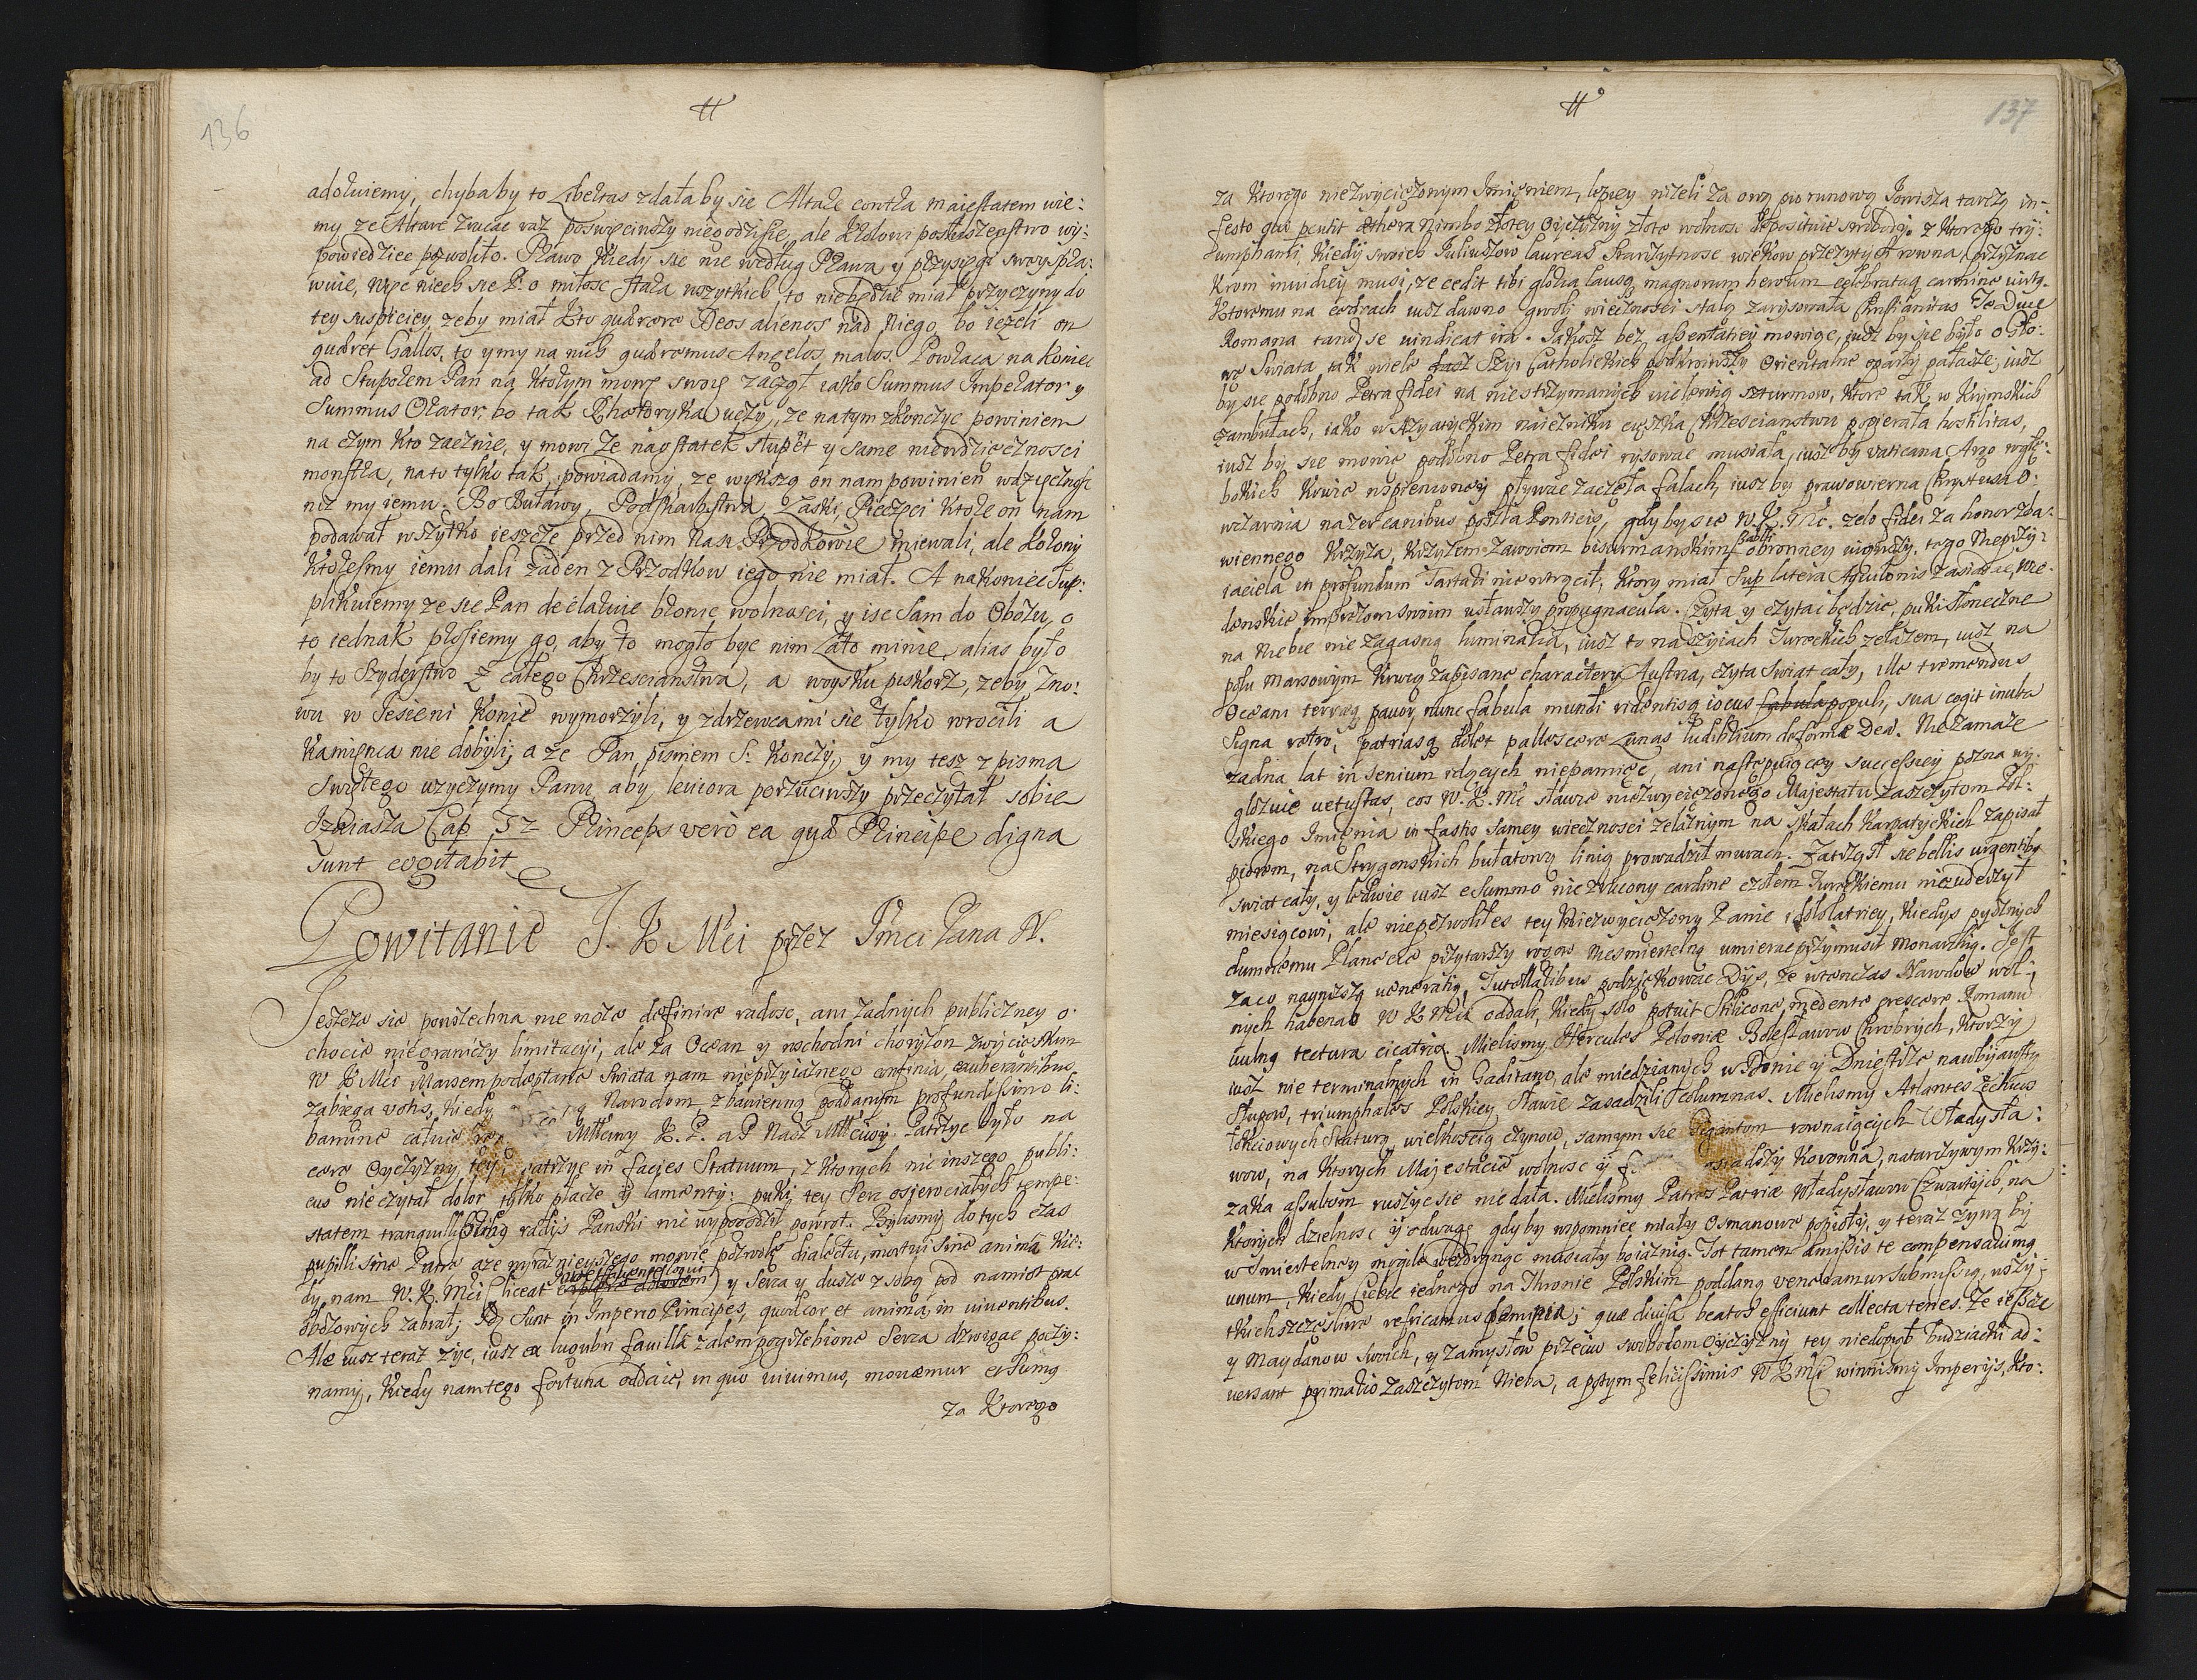 136
#
adoruiemy, chybaby to Libertas zdałaby sie Altare contra maiestatem wie:
my ze Altare zrucac raz poswięciwszy niegodzisie, ale Krolowi posłuszenstwo wy:
powiedziec pozwolito. Prawo kiedy sie nie według Prawa y przysięgi swoy spra:
wuie, więc niech sie P. o miłosc stara wszytkich, to niebędzie miał przyczyny do
tey suspiciey, zeby miał kto quærere Deos alienos nad niego, bo iezeli on
quæret Gallos, to y my na nich quæremus Angelos malos. Powraca na koniec
ad Stuporem Pan na ktorym mowę swoię zaczął iako Summus Imperator y
Summus Orator, bo tak Rhetoryka uczy, ze natym zkonczyc powinien
na czym kto zacznie, y mowi ze naostatek stupet y same niewdzięcznosci
monstra, nato tylko tak powiadamy, ze wykszą on nam powinien wdzięcznosc
niz my iemu. Bo Buławy, Podskarbstwa, Laski, Pieczęci ktore on nam
podawał wszytko ieszcze przed nim nasi Przodkowie miewali, ale korony
ktoresmy iemu dali zaden z Przodkow iego nie miał. A nakoniec sup:
plikuiemy ze sie Pan declaruie bronic wolnosci, y isc sam do Obozu, o
to iednak prosiemy go, aby to mogło byc nim Lato minie, alias było
by to szyderstwo z całego Chrzescianstwa, a woysku piskorz, zeby zno:
wu w Iesieni konie wymorzyli, y zdrzewcami sie tylko wrocili a
Kamienca nie dobyli; a ze Pan pismem S. konczy, y my tesz z pisma
Swiętego uzyczymy Panu, aby leuiora porzuciwszy przeczytał sobie
Izaiasza Cap 32 Princeps verò ea quæ Principe digna
sunt cogitabit
Powitanie J. K Mci przez Jmci Pana N.
Iesteze sie powszechna nie może definire radosc, ani zadnych publiczney o:
chocie niegraniczy limitacyi, ale za Ocean y wschodni choryzon zwycięskim
W K Mci Marsem podeptane swiata nam nieprzyiaznego confinia, exuberantibus
zabiega votis, kiedy Narodom, zbawienną poddanym profundissimo li:
banine całuie Mściwy K. P. a P Nasz Mściwy. Patrzyc było na
cerę Oyczyzny tey, patrzyc in facies Statuum, z ktorych nic inszego publi:
cus nie czytał dolor tylko płacze y lamenty: puki tey Serc osierociałych tempe:
statem tranquillissimis radijs Panski nie wypogodził powrot. Bylismy do tych czas
pupilli sine Patre aze wyrazniey szego mowie pozwole dialectu, mortui sine anima kie:
dy nam W. K. Mci (liceat y Serca y dusze z sobą pod namiot prac
obozowych zabrał; Id sunt in Imperio Principes, quod cor et anima in viuentibus.
Ale iusz teraz zyc, iusz ex lugubri fauilla zalem pogrzebione Serca dzwigac poczy:
namy, kiedy nam tego fortuna oddaie, in quo uiuimus, mouemur et sumus
za ktorego
137
#
za ktorego niezwyciężonym Imieniem, lepiey nizeli za ową piorunową Iowisza tarczą in:
festo quæ penlit æthera nimbo złotey Oyczyzny złote wolnosc deposituie swobody. z ktorego try:
umphami, kiedy swoich Iuliuszow laureas Starozytnosc wiekow przezytych rowna, przyznac
krom inuidiey musi, ze cedit tibi gloria lausq magnorum heroum celebrataq carmine virtus.
Ktoremu na cedrach iusz dawno grotli wiecznosci stalą zarysowała Christianitas Te Duce
Romana tandem se uindicat ira. Iakosz bez assentatiey mowiąc, iusz by sie było o Gło:
wę Swiata tak wiele Szyi Catholickich podkroiwszy Orientalne oparły pałasze, iusz
by sie podobno Petra fidei na niestrzymanych wielening szturmow, ktore tak w Krymskich
zambułach, iako w Azyatyckim naiezniku cięszka Chrzescianstwu popierała hostilitas,
iusz by sie mowie podobno Petra fidei rysowac musiała, iusz by vaticana Argo wgłę:
bokich krwie nspienioney pływac zaczęła falach, iusz by prawowierna Chrystusa O:
wczarnia nazer canibus poszła Ponticis, gdyby sie W. K. Mc. zelo fidei za honor zba:
wiennego Krzyża, Krzyżem zawoiom bisurmanskim obronney uiąwszy. tego Nieprzy:
iaciela in profundum Tartari nie wtrącił, ktory miał sup latera Aquilonis zasiadac, wie:
denskie imprezom swoim usławszy propugnacula. Czyta y czytac będzie, puki słoneczne
na Niebie nie zagasną luminaria, iusz to na szyiach Tureckich zelazem, iusz na
polu Marsowym krwią zapisane charactery Austria, czyta swiat cały, ille tremendus
Oceani terraq pauor, nunc fabula mundi ridentisq iocus populi, sua cogit inulta
Signa retrò, patriasq dolet pallescere Lunas ludibrium deforme Deæ. Niezamaze
zadna lat in senium idących niepamięc, ani następuiącey successiey pozna wy:
glozuie uetustas, cos W. K. Mc sławie niezwyciężonego Majestatu zaszczytom Pol:
skiego Imienia in fastis samey wiecznosci zelaznym na skałach Karpatyckich zapisał
piorem, na Strygonskich bułatową linią prowadził murach. Zatrząsł sie bellis urgentibus
swiat cały, y ledwie iusz e summo nie zrzucony cardine czołem Tureckiemu nieuderzył
miesiącowi, ale niepozwoliłes tey Niezwyciężony Panie idololatriey, kiedys pysznych
dumnemu Planecie przytarszy rogow niesmiertelną umierac przymusił Monarchią. Iest
za co naywyszszą ueneratią, Tutellaribus podziękowac Dijs, ze wtenczas Narodow wol:
nych habenas W K Mci oddali, kiedy solo potuit Stilicone medente crescere Romani
uulnq tectura cicatrix. Mielismy Hercules Poloniæ Bolesławow Chrobrych, ktorzy
iusz nie terminalnych in Gaditano, ale miedzianych w Donie y Dniestrze nawbijawszy
Słupow, triumphales Polskiey Sławie zasadzili columnas. Mielismy Atlantes Lechicos
łokciowych staturą, wielkoscią czynow, samym sie Gigantom rownaiących Władysła:
wow, na ktorych Majestacie wolnosc y osiadszy Koronna, natarczywym krzy:
zaka assultom ruszyc sie nie dała. Mielismy Patres Patriæ Władysławow Czwartych, na
ktorych dzielnosc y odwagę gdyby wspomniec miały Osmanowe popioły, y teraz zywą by
w smiertelney mogile wzdrygnąc musiały boiaznią. Tot tamen amissis te compensauimq
unum, kiedy Ciebie iednego na Thronie Polskim poddaną veneramur submissią, wszy:
tkich szczesliwe refricamus ; quæ diuisa beatos efficiunt collecta tenes. Ze ieszcze
y Maydanow swoich, y zamysłow przeciw swobodom Oyczyzny tey niedopiął budziacki ad:
uersant primatio zaszczytom Nieba, a potym felicissimis W K Mci winnismy Imperijs, kto: